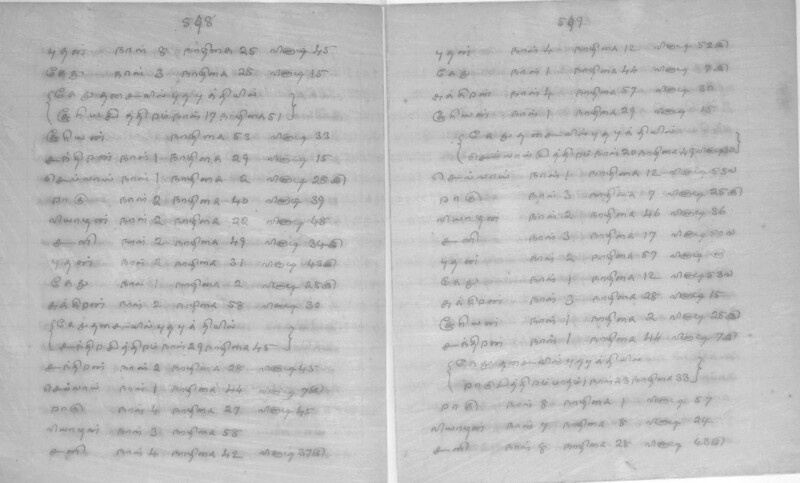 548
புதன் நாள் 8 நாழிகை 25 வினாடி 45
கேது நாள் 3 நாழிகை 25 வினாடி 15
{கேது தசையில் புதபுத்தியில்
சூரியசித்திரம் நாள் 17 நாழிகை 51}
சூரியன் நாழிகை 53 வினாடி 33
சந்திரன் நாள் 1 நாழிகை 29 வினாடி 15
செவ்வாய் நாள் 1 நாழிகை 2 வினாடி 28
ராகு நாள் 2 நாழிகை 40 வினாடி 39
வியாழன் நாள் 2 நாழிகை 22 வினாடி 48
சனி நாள் 2 நாழிகை 49 வினாடி 34
புதன் நாள் 2 நாழிகை 31 வினாடி 43
கேது நாள் 1 நாழிகை 2 வினாடி 28
சுக்கிரன் நாள் 2 நாழிகை 58 வினாடி 30
{கேது தசையில் புதபுத்தியில்
சந்திரசித்திரம் நாள் 29 நாழிகை 45}
சந்திரன் நாள் 2 நாழிகை 28 வினாடி 45
செவ்வாய் நாள் 1 நாழிகை 44 வினாடி
ராகு நாள் 4 நாழிகை 27 வினாடி 45
வியாழன் நாள் 3 நாழிகை 58
சனி நாள் 4 நாழிகை 42 வினாடி 37
549
புதன் நாள் 4 நாழிகை 12 வினாடி 52
கேது நாள் 1 நாழிகை 44 வினாடி
சுக்கிரன் நாள் 4 நாழிகை 57 வினாடி 30
சூரியன் நாள் 1 நாழிகை 29 வினாடி 15
{கேது தசையில் புதபுத்தியில்
செவ்வாய்சித்திரம் நாள் 20 நாழிகை 49
செவ்வாய் நாள் 1 நாழிகை 12 வினாடி
ராகு நாள் 3 நாழிகை 7 வினாடி 25
வியாழன் நாள் 2 நாழிகை 46 வினாடி 36
சனி நாள் 3 நாழிகை 17 வினாடி
புதன் நாள் 2 நாழிகை 57 வினாடி
கேது நாள் 1 நாழிகை 12 வினாடி
சுக்கிரன் நாள் 3 நாழிகை 28 வினாடி 15
சூரியன் நாள் 1 நாழிகை 2 வினாடி 28
சந்திரன் நாள் 1 நாழிகை 44 வினாடி
{கேது தசையில் புதபுத்தியில்
ராகுசித்திரம் மாதம் 1 நாள் 23 நாழிகை 33}
ராகு நாள் 8 நாழிகை 1 வினாடி 57
வியாழன் நாள் 7 நாழிகை 8 வினாடி 24
சனி நாள் 8 நாழிகை 28 வினாடி 43